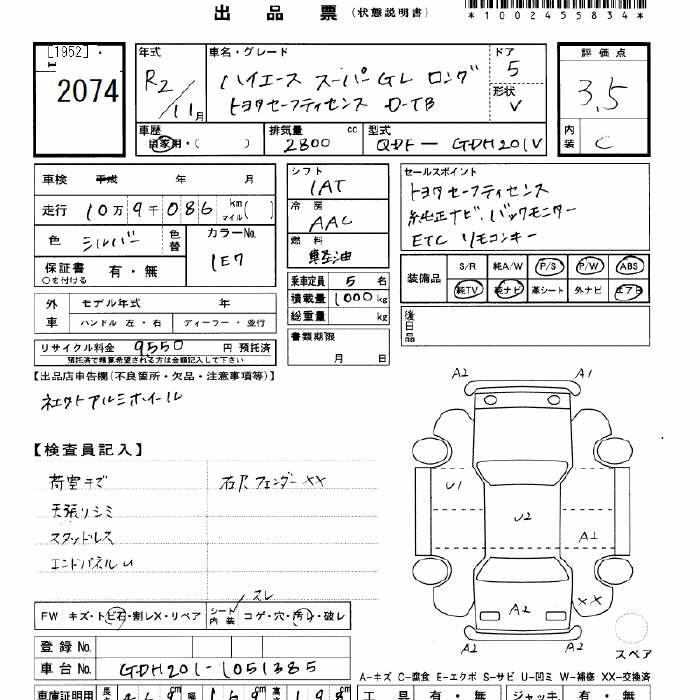 出品票 (状態説明書)
*1002455834*
[1952]
2074
年式 R2/11月
車名・グレード ハイエース スーパーGL ロング
トヨタセーフティセンス D-TB
ドア 5
形状 V
評価点 3.5
内装 C
車歴 自家用・( )
排気量 2800 cc
型式 QDF-GDH201V
車検 平成 年 月
走行 10万9千086 km マイル( )
色 シルバー 色替
カラーNo. 1E7
保証書 有・無
○を付ける
シフト 1AT
冷房 AAC
燃料 軽油
乗車定員 5名
積載量 1000kg
総重量 kg
書類期限
月 日
セールスポイント
トヨタセーフティセンス
純正ナビ、バックモニター
ETC リモコンキー
装備品 S/R 純A/W P/S P/W ABS
純TV 純ナビ 革シート 外ナビ エアB
外車 モデル年式 年
ハンドル 左・右 ディーラー・並行
後日品
リサイクル料金 9550 円 預託済
預託済で精算希望される方は金額記入して下さい
【出品店申告欄(不良箇所・欠品・注意事項等)】
社外アルミホイール
【検査員記入】
荷室キズ
天張リシミ
スタッドレス
エンドパネルU
右Rフェンダー XX
スレ
FW キズ・トビ石・割レX・リペア シート内装 コゲ・穴・汚レ・破レ
登録No.
車台No. GDH201-1051385
A2 A1
U1
U2
A1
A2
XX
A2 A2
スペア
A-キズ C-腐食 E-エクボ S-サビ U-凹ミ W-補修 XX-交換済
車庫証明用
工具 有・無 ジャッキ 有・無